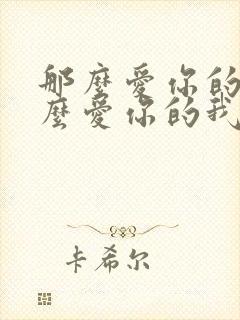 那麼愛你的
麼愛你的我
卡希尔